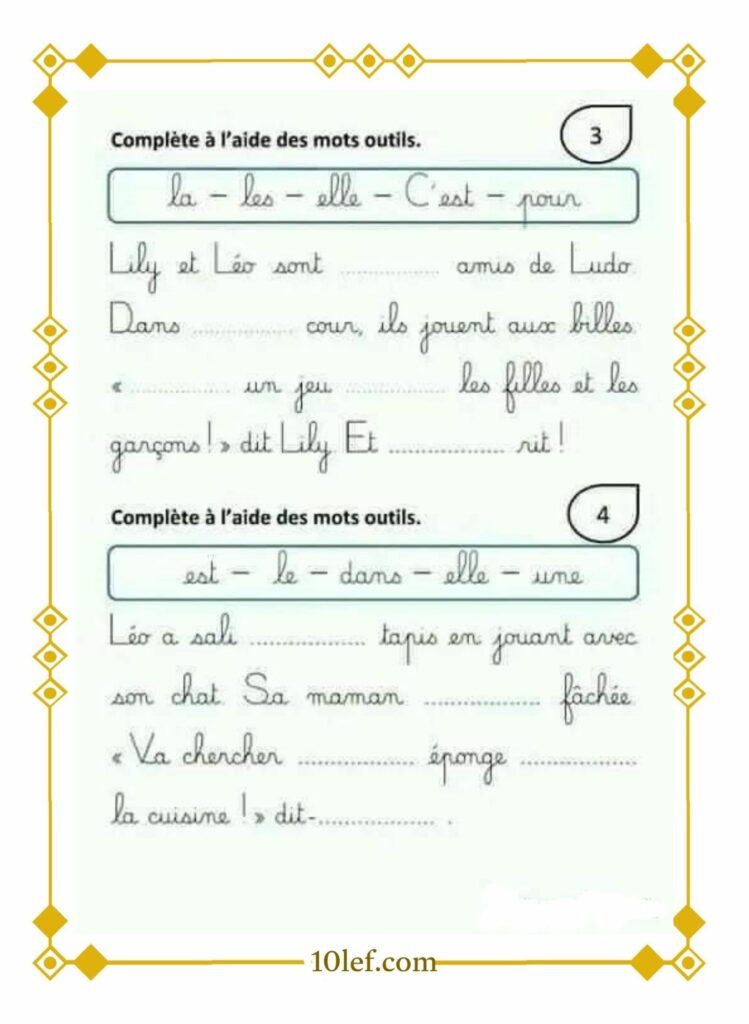 Complète à l'aide des mots outils.
3
la – les – elle – C'est – pour
Lily et Léo sont .................... amis de Ludo.
Dans .................... cour, ils jouent aux billes.
« .................... un jeu .................... les filles et les
garçons ! » dit Lily. Et ........................ rit !
Complète à l'aide des mots outils.
4
est – le – dans – elle – une
Léo a sali ........................ tapis en jouant avec
son chat. Sa maman ........................ fâchée.
« Va chercher ........................ éponge ........................
la cuisine ! » dit-........................ .
10lef.com